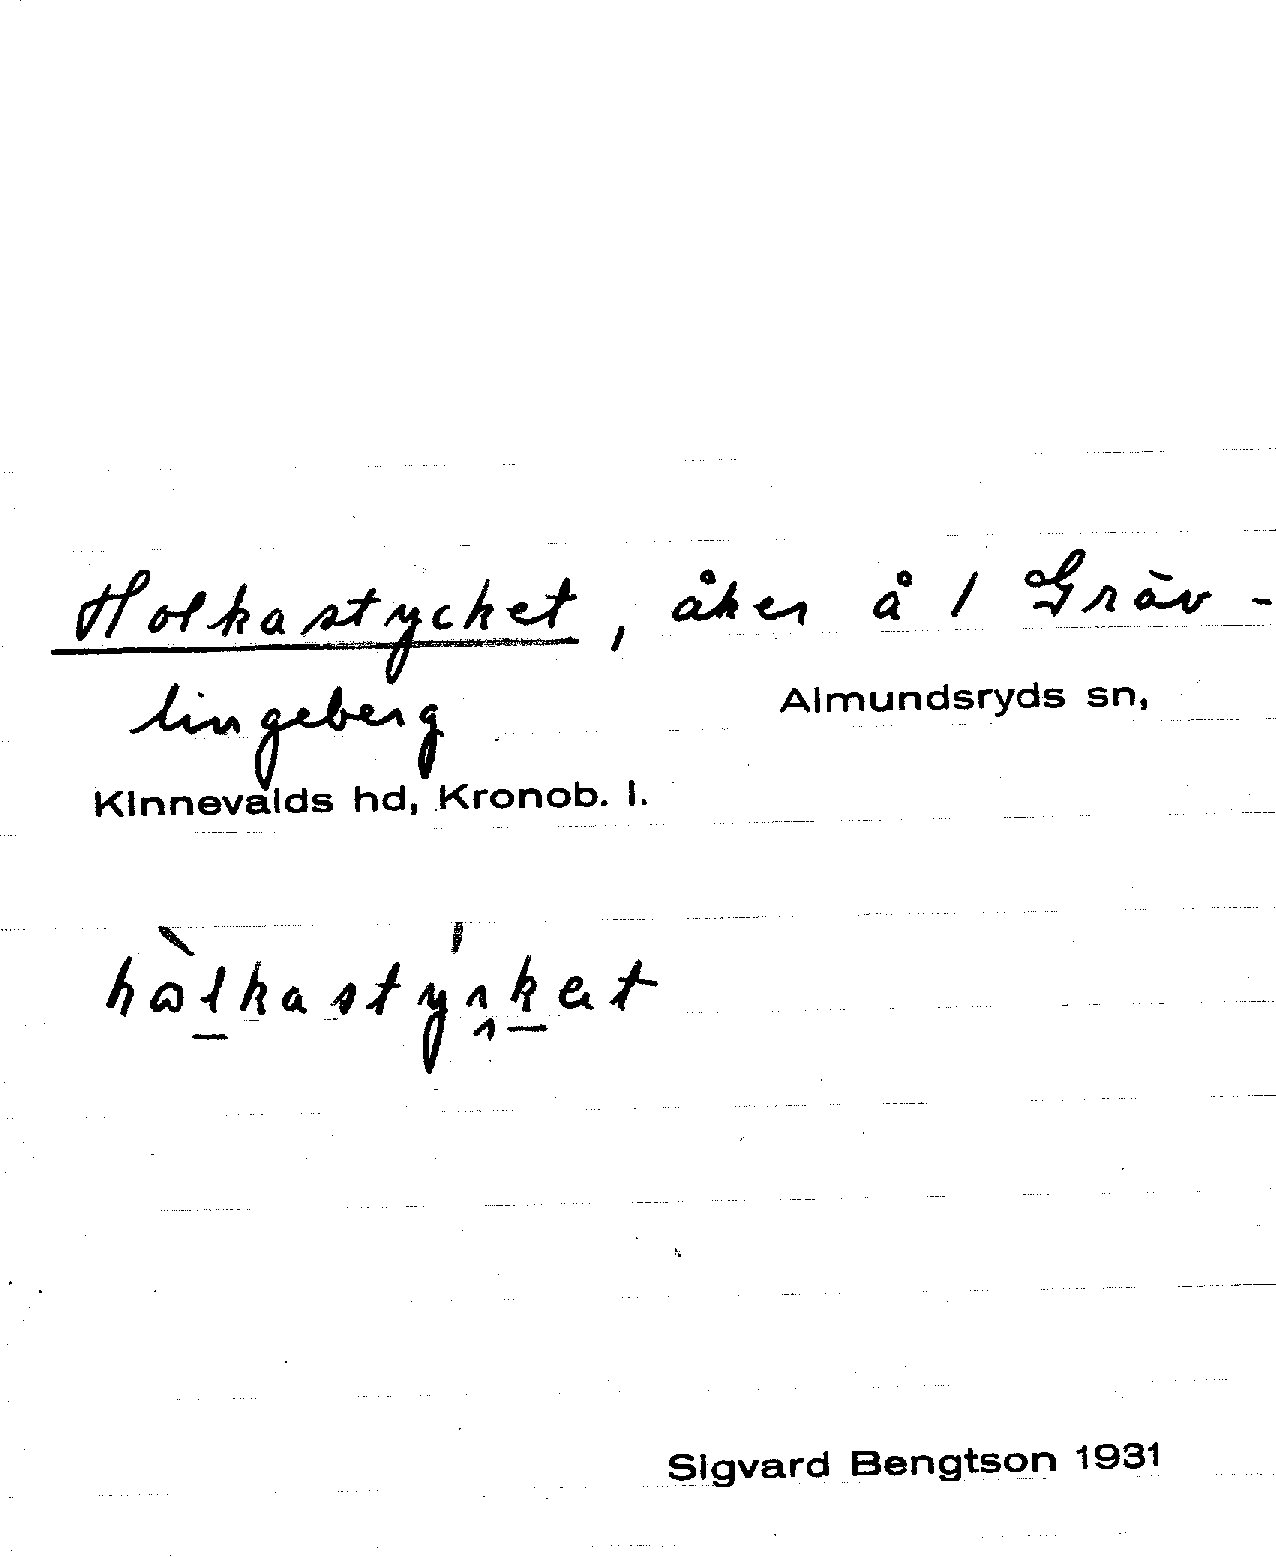 Holkastycket, åker å 1 Gräv-
lingeberg
Almundsryds sn,
Kinnevalds hd, Kronob. l.
Sigvard Bengtson 1931